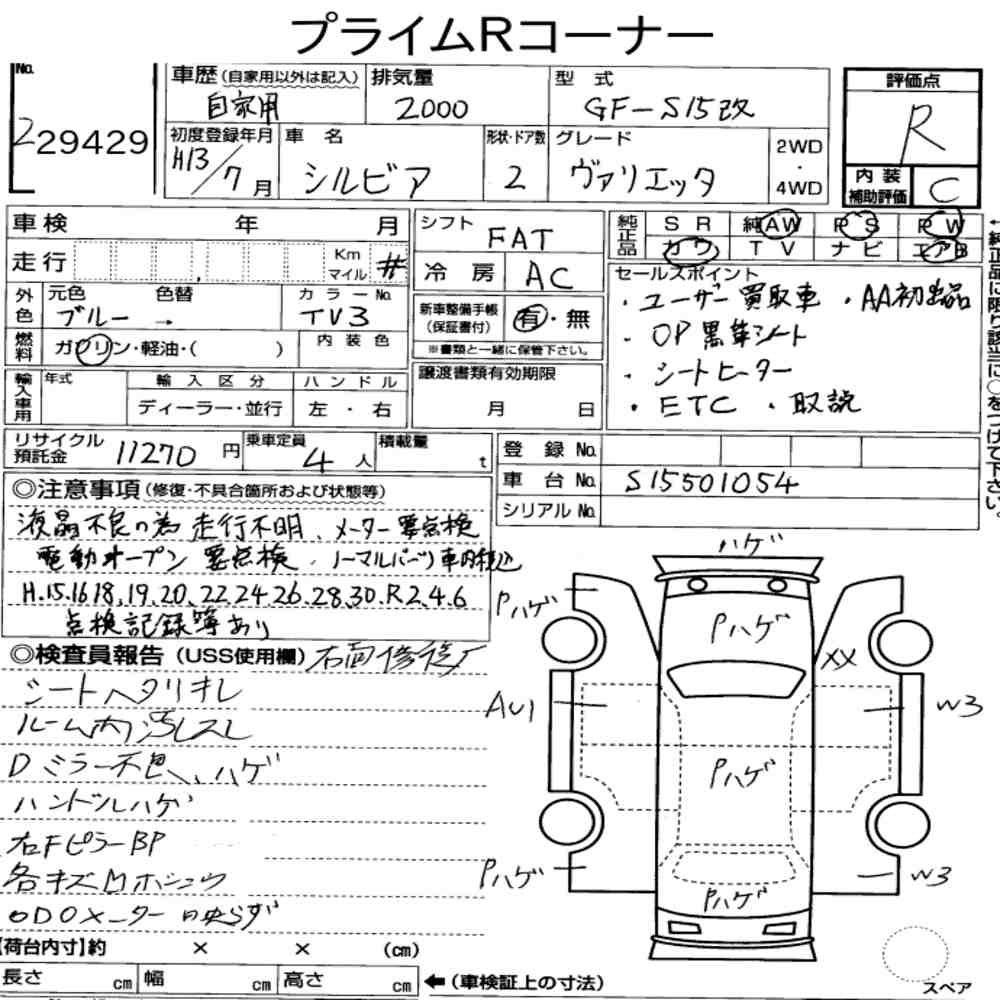 プライムRコーナー
No.
229429
車歴(自家用以外は記入)
自家用
排気量
2000
型 式
GF-S15改
評価点
R
内装
補助評価
C
初度登録年月
H13/7月
車 名
シルビア
形状・ドア数
2
グレード
ヴァリエッタ
2WD
・
4WD
車検 年 月
走行 , Km
マイル #
シフト
FAT
冷房 AC
純正品
SR 純AW PS PW
カワ TV ナビ エアB
←純正品に限り該当に○をつけて下さい。
外色
元色 色替
ブルー →
カラーNo.
TV3
燃料
ガソリン・軽油・( )
内装色
新車整備手帳
(保証書付)
有・無
※書類と一緒に保管下さい。
セールスポイント
・ユーザー買取車 ・AA初出品
・OP黒革シート
・シートヒーター
・ETC ・取説
輸入車用
年式
輸入区分
ディーラー・並行
ハンドル
左・右
譲渡書類有効期限
月 日
リサイクル
預託金
11270 円
乗車定員
4 人
積載量
t
登録 No.
車台 No.
S15501054
シリアル No.
◎注意事項(修復・不具合箇所および状態等)
液晶不良の為 走行不明、メーター要点検
電動オープン 要点検、ノーマルパーツ車内積込
H.15.16 18.19.20.22.24 26.28.30.R2.4.6
点検記録簿あり
◎検査員報告(USS使用欄)
シートヘタリキレ
ルーム内
Dミラー ハゲ
ハンドルハゲ
右FピラーBP
各キズ
ODOメーター
ハゲ
Pハゲ
Pハゲ
XX
AU1
W3
Pハゲ
Pハゲ
W3
Pハゲ
【荷台内寸】約 × × (cm)
長さ cm 幅 cm 高さ cm
←(車検証上の寸法)
スペア